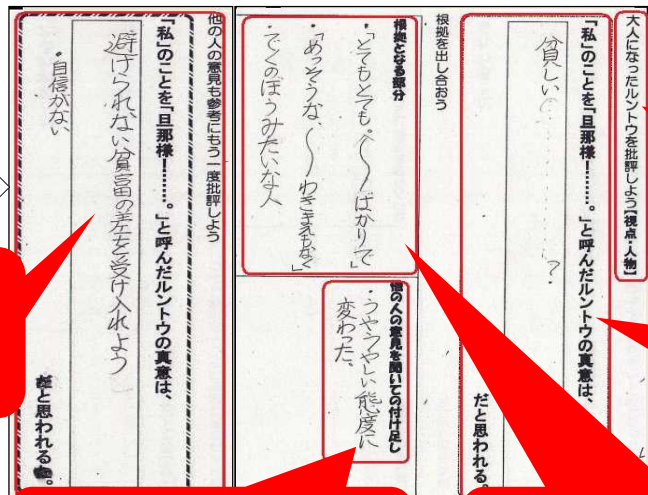 大人になったルントウを批評しよう【視点・人物】
「私」のことを「旦那様！………。」と呼んだルントウの真意は、
貧しい(………?
だと思われる。
根拠を出し合おう
根拠となる部分
・「とてもとても。〜ばかりで」
・「めっそうな、〜わきまえもなく」
・でくのぼうみたいな人
他の人の意見を聞いての付け足し
・うやうやしい態度に
変わった。
他の人の意見も参考にもう一度批評しよう
「私」のことを「旦那様！………。」と呼んだルントウの真意は、
避けられない貧富の差を受け入れよう」
・自信がない
と思われる。